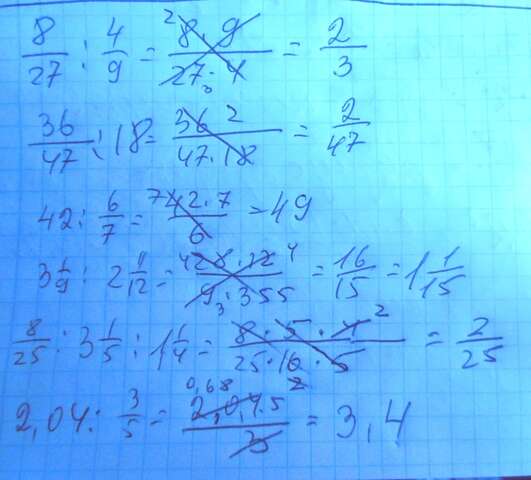 8/27 : 4/9 = 2 8·9/27·4 3 = 2/3
36/47 : 18 = 36 2/47·18 = 2/47
42 : 6/7 = 7 42·7/6 = 49
3 1/9 : 2 11/12 = 4 28·12 4/9 3·35 5 = 16/15 = 1 1/15
8/25 : 3 1/5 : 1 1/4 = 8·5·4 2/25·16·5 2 = 2/25
2,04 : 3/5 = 0,68 2,04·5/3 = 3,4